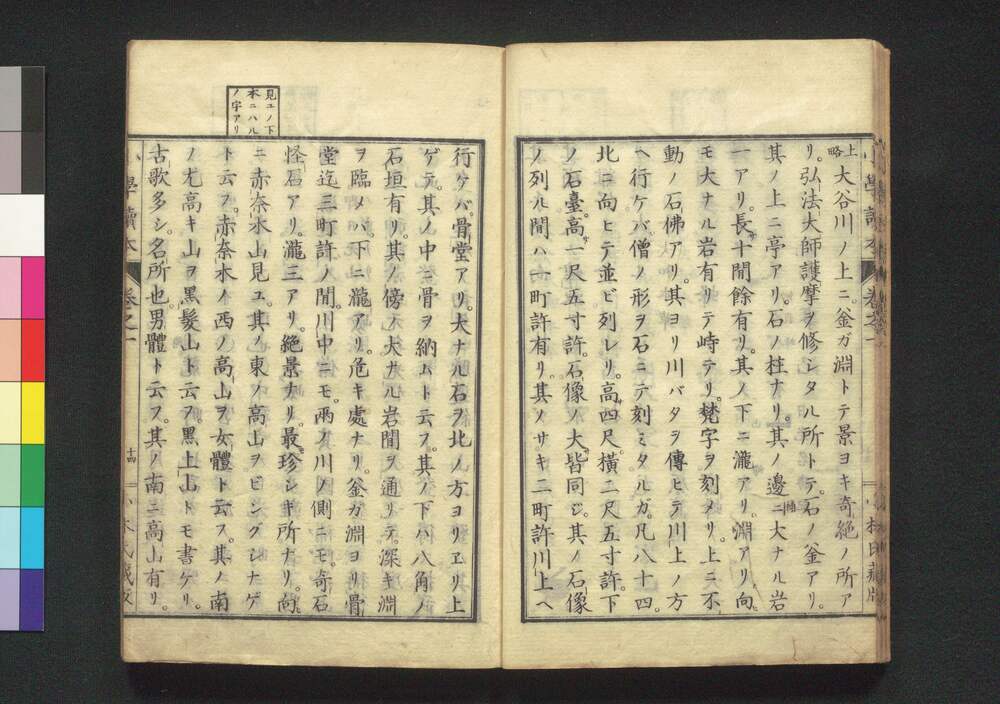 上略
大谷川ノ上ニ。釜ガ淵トテ景ヨキ奇絶ノ所ア
リ。弘法大師護摩ヲ修シタル所トテ。石ノ釜アリ。
其ノ上ニ亭アリ。石ノ柱ナリ。其ノ邊ニ大ナル岩
一アリ。長十間餘有リ。其ノ下ニ瀧アリ。淵アリ。向
モ大ナル岩有リテ峙テリ。梵字ヲ刻メリ。上ニ不
動ノ石佛アリ。其ヨリ川バタヲ傳ヒテ川上ノ方
ヘ行ケバ。僧ノ形ヲ石ニテ刻ミタルガ。凡八十四。
北ニ向ヒテ並ビ列レリ。高四尺。橫二尺五寸許。下
ノ石臺。高一尺五寸許。石像ノ大皆同ジ。其ノ石像
ノ列ル間ハ一町許有リ。其ノサキ二町許川上ヘ
小學讀本 卷之一
見ユノ下
本ニハル
ノ字アリ
行ケバ。骨堂アリ。大ナル石ヲ北ノ方ヨリヱリ上
ゲテ。其ノ中ニ骨ヲ納ムト云フ。其ノ下ハ八角ノ
石垣有リ。其ノ傍ノ大ナル岩間ヲ通リテ。深キ淵
ヲ臨メバ。下ニ瀧アリ。危キ處ナリ。釜ガ淵ヨリ骨
堂迄三町許ノ間。川中ニモ。兩ノ川ノ側ニモ。奇石
怪石アリ。瀧三アリ。絕景ナリ。最珍シキ所ナリ。向
ニ赤奈木山見ユ。其ノ東ノ高山ヲビングシナゲ
ト云フ。赤奈木ノ西ノ高山ヲ女體ト云フ。其ノ南
ノ尤高キ山ヲ黑髮山ト云フ。黑上山トモ書ケリ。
古歌多シ。名所也。男體ト云フ。其ノ南ニ高山有リ。
小學讀本 卷之一
十四